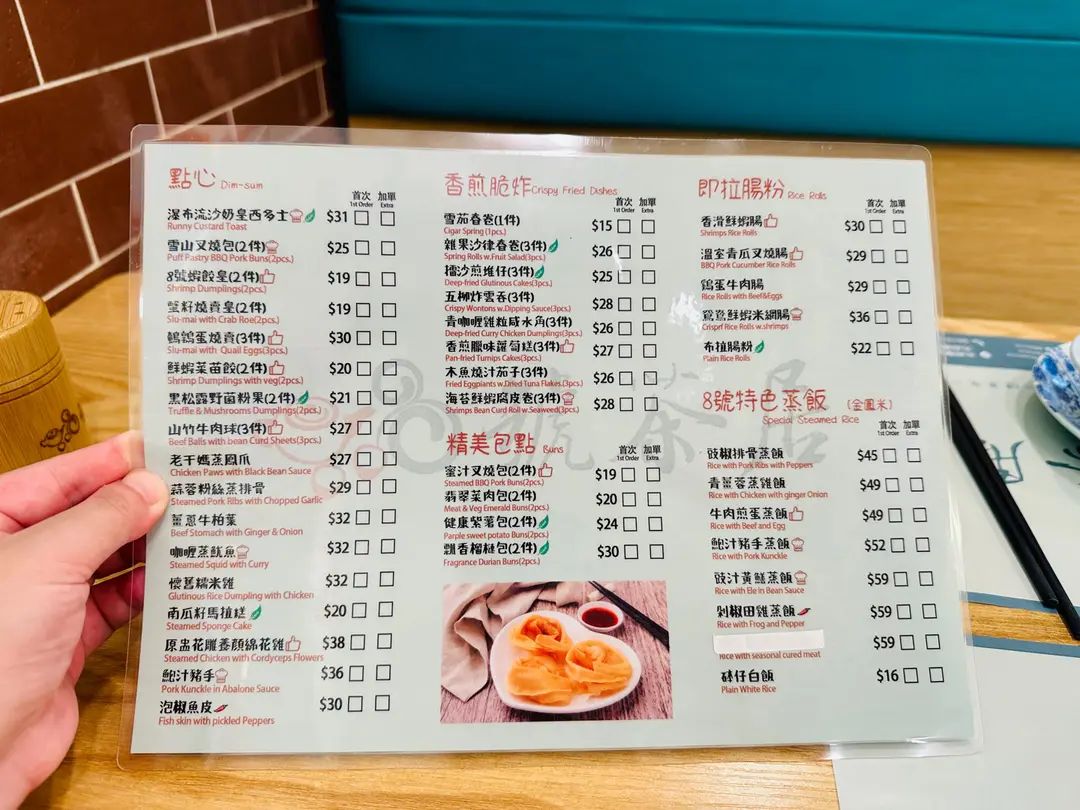 點心 Dim-sum
首次 加單
1st Order Extra
瀑布流沙奶皇西多士 $31
Runny Custard Toast
雪山叉燒包(2件) $25
Puff Pastry BBQ Pork Buns(2pcs.)
8號蝦餃皇(2件) $19
Shrimp Dumplings(2pcs.)
蟹籽燒賣皇(2件) $19
Siu-mai with Crab Roe(2pcs.)
鵪鶉蛋燒賣(3件) $30
Siu-mai with Quail Eggs(3pcs.)
鮮蝦菜苗餃(2件) $20
Shrimp Dumplings with veg(2pcs.)
黑松露野菌粉果(2件) $21
Truffle & Mushrooms Dumplings(2pcs.)
山竹牛肉球(3件) $27
Beef Balls with bean Curd Sheets(3pcs.)
老干媽蒸鳳爪 $27
Chicken Paws with Black Bean Sauce
蒜蓉粉絲蒸排骨 $29
Steamed Pork Ribs with Chopped Garlic
薑蔥牛柏葉 $32
Beef Stomach with Ginger & Onion
咖喱蒸魷魚 $32
Steamed Squid with Curry
懷舊糯米雞 $32
Glutinous Rice Dumpling with Chicken
南瓜籽馬拉糕 $20
Steamed Sponge Cake
原盅花雕養顏綿花雞 $38
Steamed Chicken with Cordyceps Flowers
鮑汁豬手 $36
Pork Kunckle in Abalone Sauce
泡椒魚皮 $30
Fish skin with pickled Peppers
香煎脆炸 Crispy Fried Dishes
首次 加單
1st Order Extra
雪茄春卷(1件) $15
Cigar Spring (1pcs.)
雜果沙律春卷(3件) $26
Spring Rolls w.Fruit Salad(3pcs.)
擂沙煎堆仔(3件) $25
Deep-fried Glutinous Cakes(3pcs.)
五柳炸雲吞(3件) $28
Crispy Wontons w.Dipping Sauce(3pcs.)
青咖喱雞粒咸水角(3件) $26
Deep-fried Curry Chicken Dumplings(3pcs.)
香煎臘味蘿蔔糕(3件) $27
Pan-fried Turnips Cakes(3pcs.)
木魚燒汁茄子(3件) $26
Fried Eggpiants w.Dried Tuna Flakes.(3pcs.)
海苔鮮蝦腐皮卷(3件) $28
Shrimps Bean Curd Roll w.Seaweed(3pcs.)
精美包點 Buns
首次 加單
1st Order Extra
蜜汁叉燒包(2件) $19
Steamed BBQ Pork Buns(2pcs.)
翡翠菜肉包(2件) $20
Meat & Veg Emerald Buns(2pcs.)
健康紫薯包(2件) $24
Parple sweet potato Buns(2pcs.)
飄香榴槤包(2件) $30
Fragrance Durian Buns(2pcs.)
即拉腸粉 Rice Rolls
首次 加單
1st Order Extra
香滑鮮蝦腸 $30
Shrimps Rice Rolls
溫室青瓜叉燒腸 $29
BBQ Pork Cucumber Rice Rolls
鷄蛋牛肉腸 $29
Rice Rolls with Beef&Eggs
鴛鴦鮮蝦米網腸 $36
Crisprf Rice Rolls w.shrimps
布拉腸粉 $22
Plain Rice Rolls
8號特色蒸飯 (金鳳米)
Special Steamed Rice
首次 加單
1st Order Extra
豉椒排骨蒸飯 $45
Rice with Pork Ribs with Peppers
青薑蓉蒸雞飯 $49
Rice with Chicken with ginger Onion
牛肉煎蛋蒸飯 $49
Rice with Beef and Egg
鮑汁豬手蒸飯 $52
Rice with Pork Kunckle
豉汁黃鱔蒸飯 $59
Rice with Ele in Bean Sauce
剁椒田雞蒸飯 $59
Rice with Frog and Pepper
$59
Rice with seasonal cured meat
砵仔白飯 $16
Plain White Rice
8號茶居